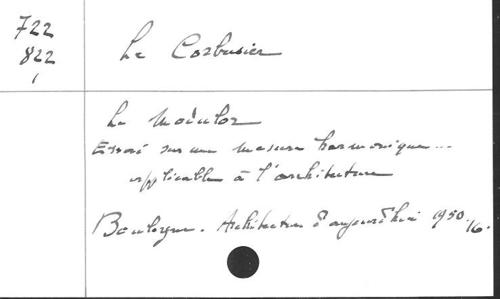 722
822
1
Le Corbusier
Le Modulor
Essai sur une mesure harmonique...
applicable à l'architecture
Boulogne. Architecture d'aujourd'hui 1950. 16.